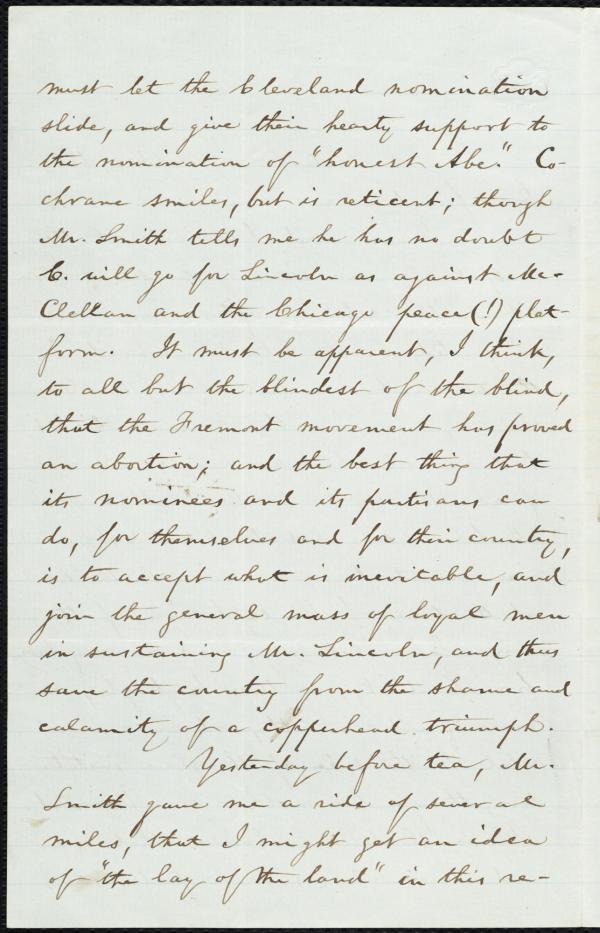 must let the Cleveland nomination
slide, and give their hearty support to
the nomination of "honest Abe." Co-
chrane smiles, but is reticent; though
Mr. Smith tells me he has no doubt
C. will go for Lincoln as against Mc-
Clellan and the Chicago peace(!) plat-
form. It must be apparent, I think,
to all but the blindest of the blind,
that the Fremont movement has proved
an abortion; and the best thing that
its nominees and its partisans can
do, for themselves and for their country,
is to accept what is inevitable, and
join the general mass of loyal men
in sustaining Mr. Lincoln, and thus
save the country from the shame and
calamity of a copperhead triumph.
Yesterday before tea, Mr.
Smith gave me a ride of several
miles, that I might get an idea
of "the lay of the land" in this re-